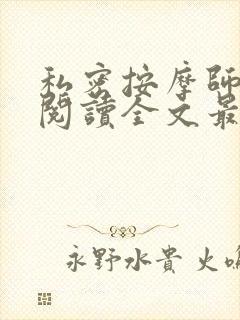 私密按摩師
閱讀全文最
永野水貴 火鳴